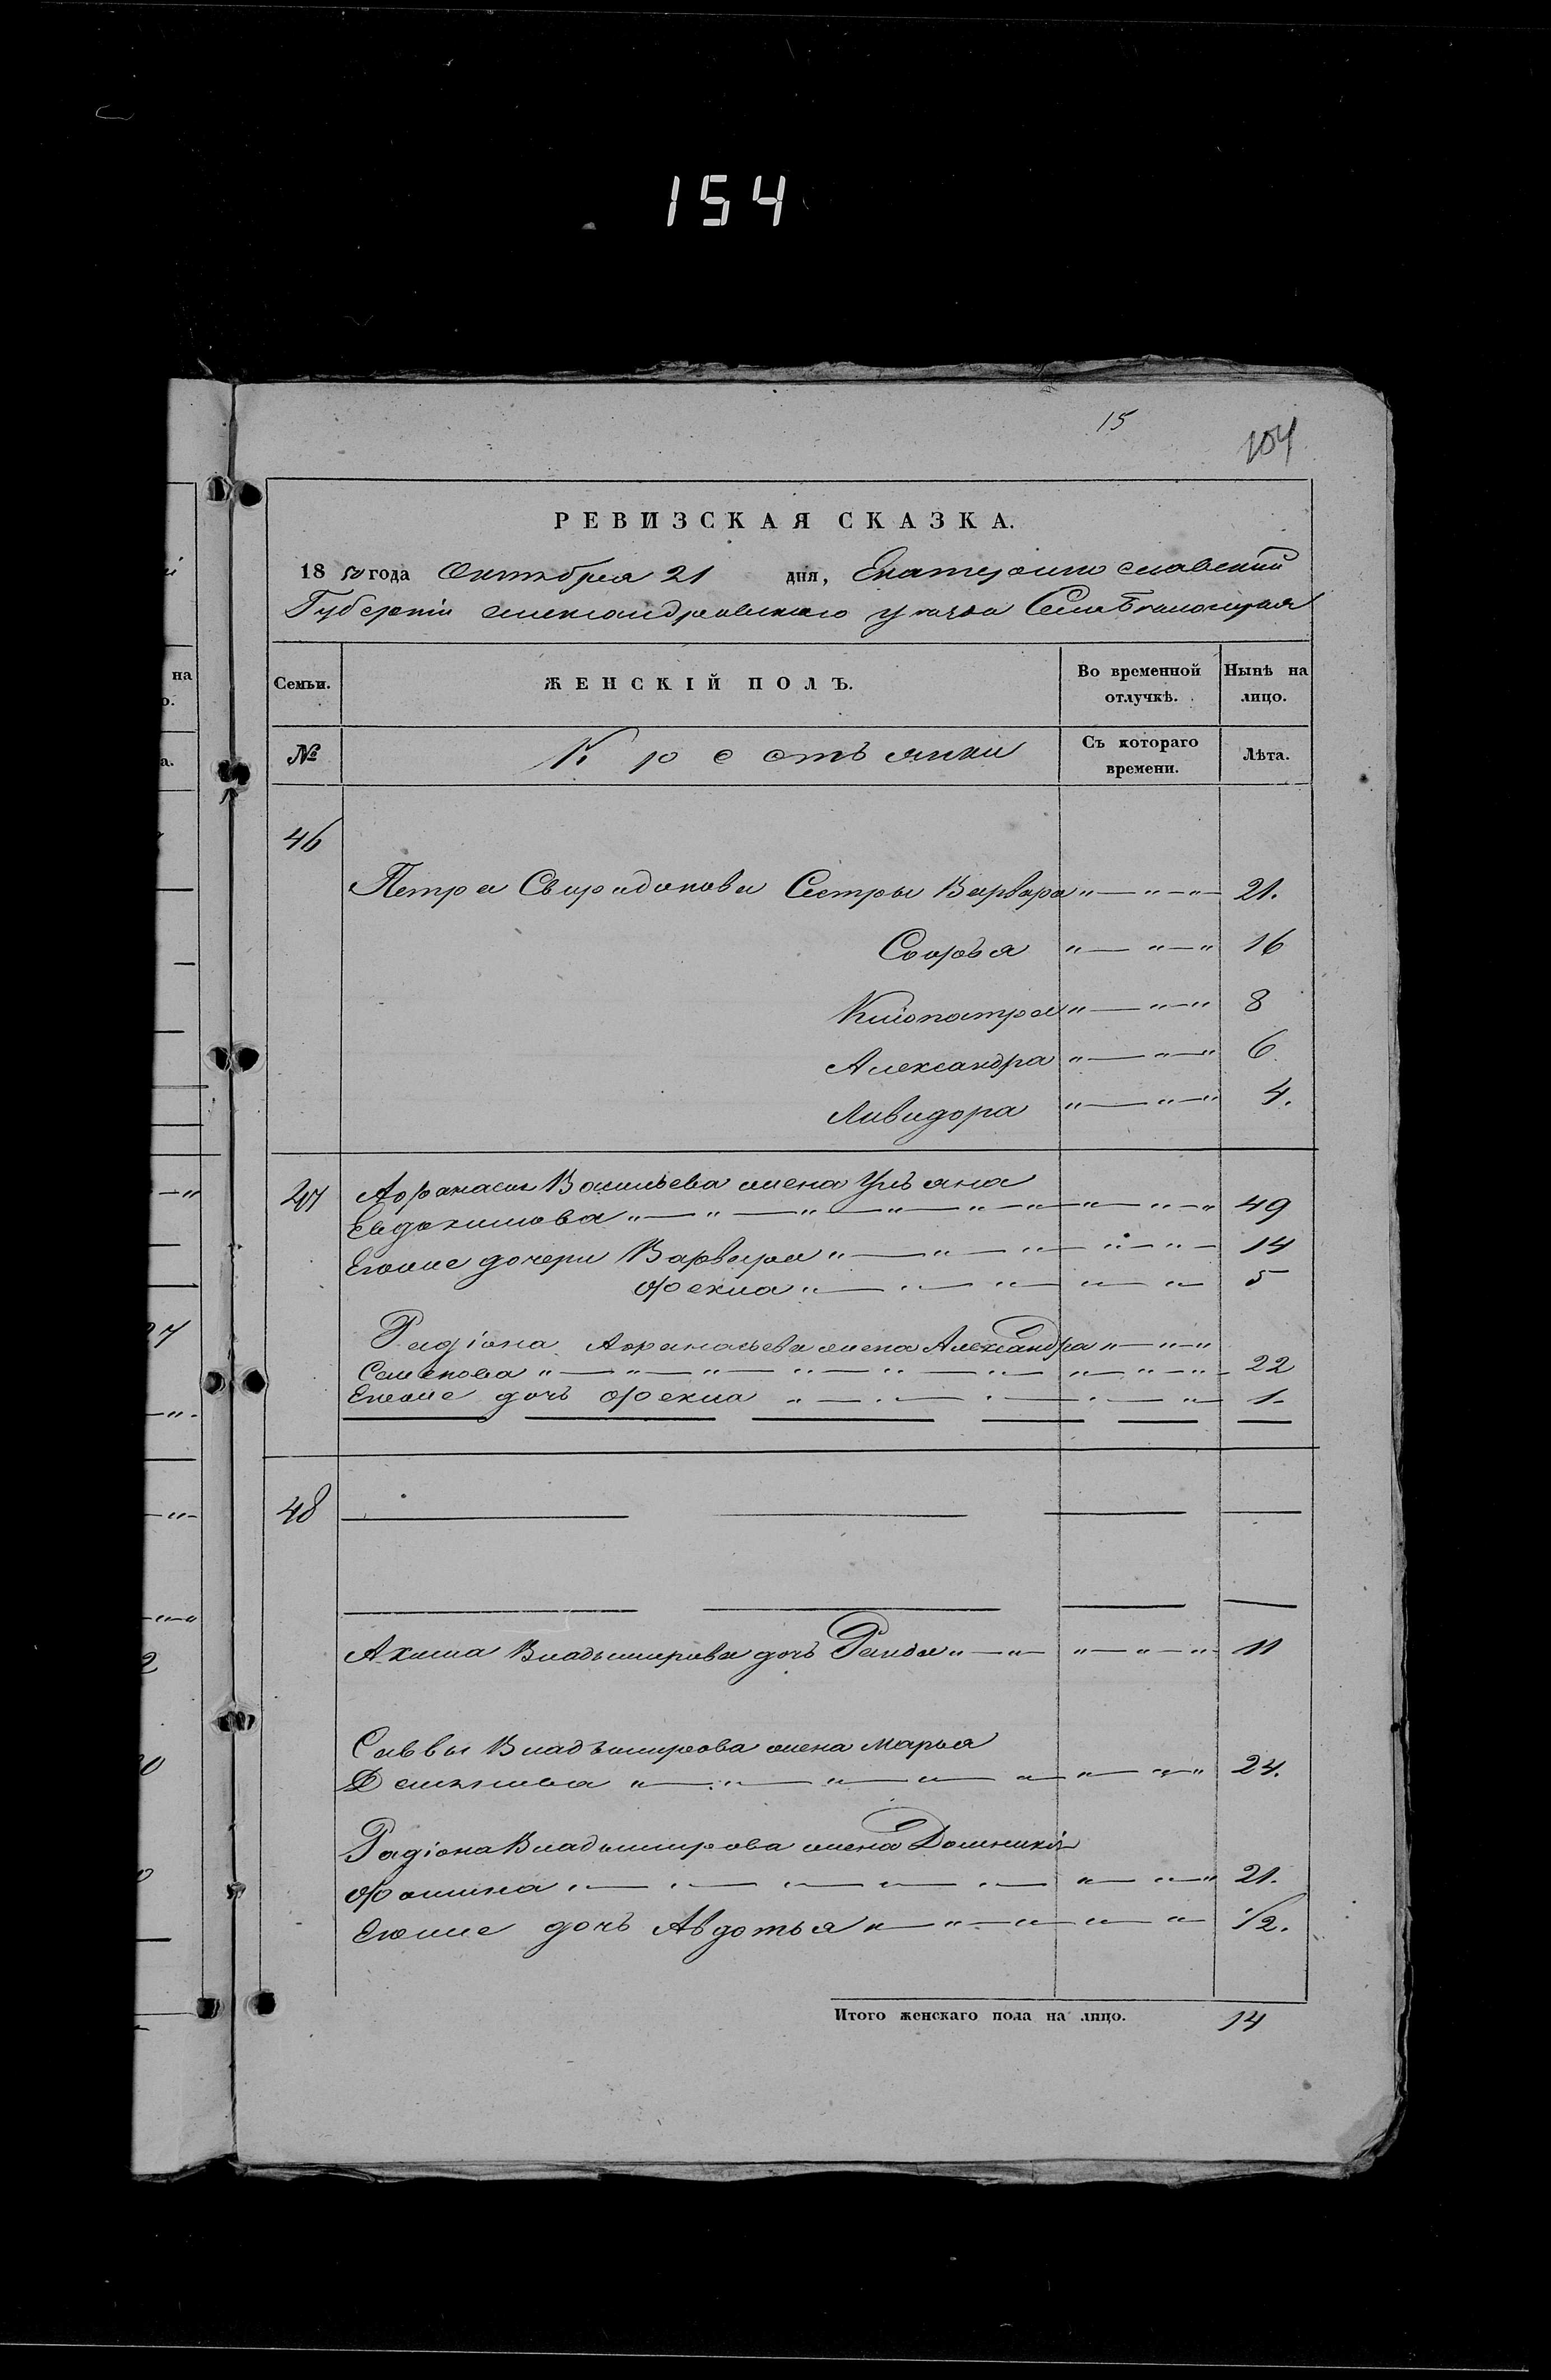 154
15
104
РЕВИЗСКАЯ СКАЗКА.
18 50 года Октября 21 дня, Екатеринославской
Губерніи Александровскаго уезда Села
на
Семьи. ЖЕНСКІЙ ПОЛЪ. Во временной отлучкѣ. Нынѣ на лицо.
№ Крестьянки Съ котораго времени. Лѣта.
46
Петра Свиридонова Сестры Варвара " — " — " — 21.
Софья " — " — " 16
Клiопатра " — " — " 8
Александра " — " — " 6
Ливидора " — " — " 4.
47 Афанасия Васильева жена Ульяна
Евдокимова " — " — " — " — " — " — " — " — " 49
Егоже дочери Варвара " — " — " — " — " — 14
Фекла " — " — " — " — " 5
Радiона Афанасьева жена Александра " — " — "
Семенова " — " — " — " — " — " — " — " — " — 22
Егоже дочь Фекла " — " — " — " — " — 1.
48
Акима Владымирова дочь " — " — " — " — " 11
Саввы Владымирова жена Марья
" — " — " — " — " — " — " 24.
Радiона Владымирова жена Домникiя
Фомина " — " — " — " — " — " — " 21.
Егоже дочь Авдотья " — " — " — " — " 1/2.
Итого женскаго пола на лицо. 14